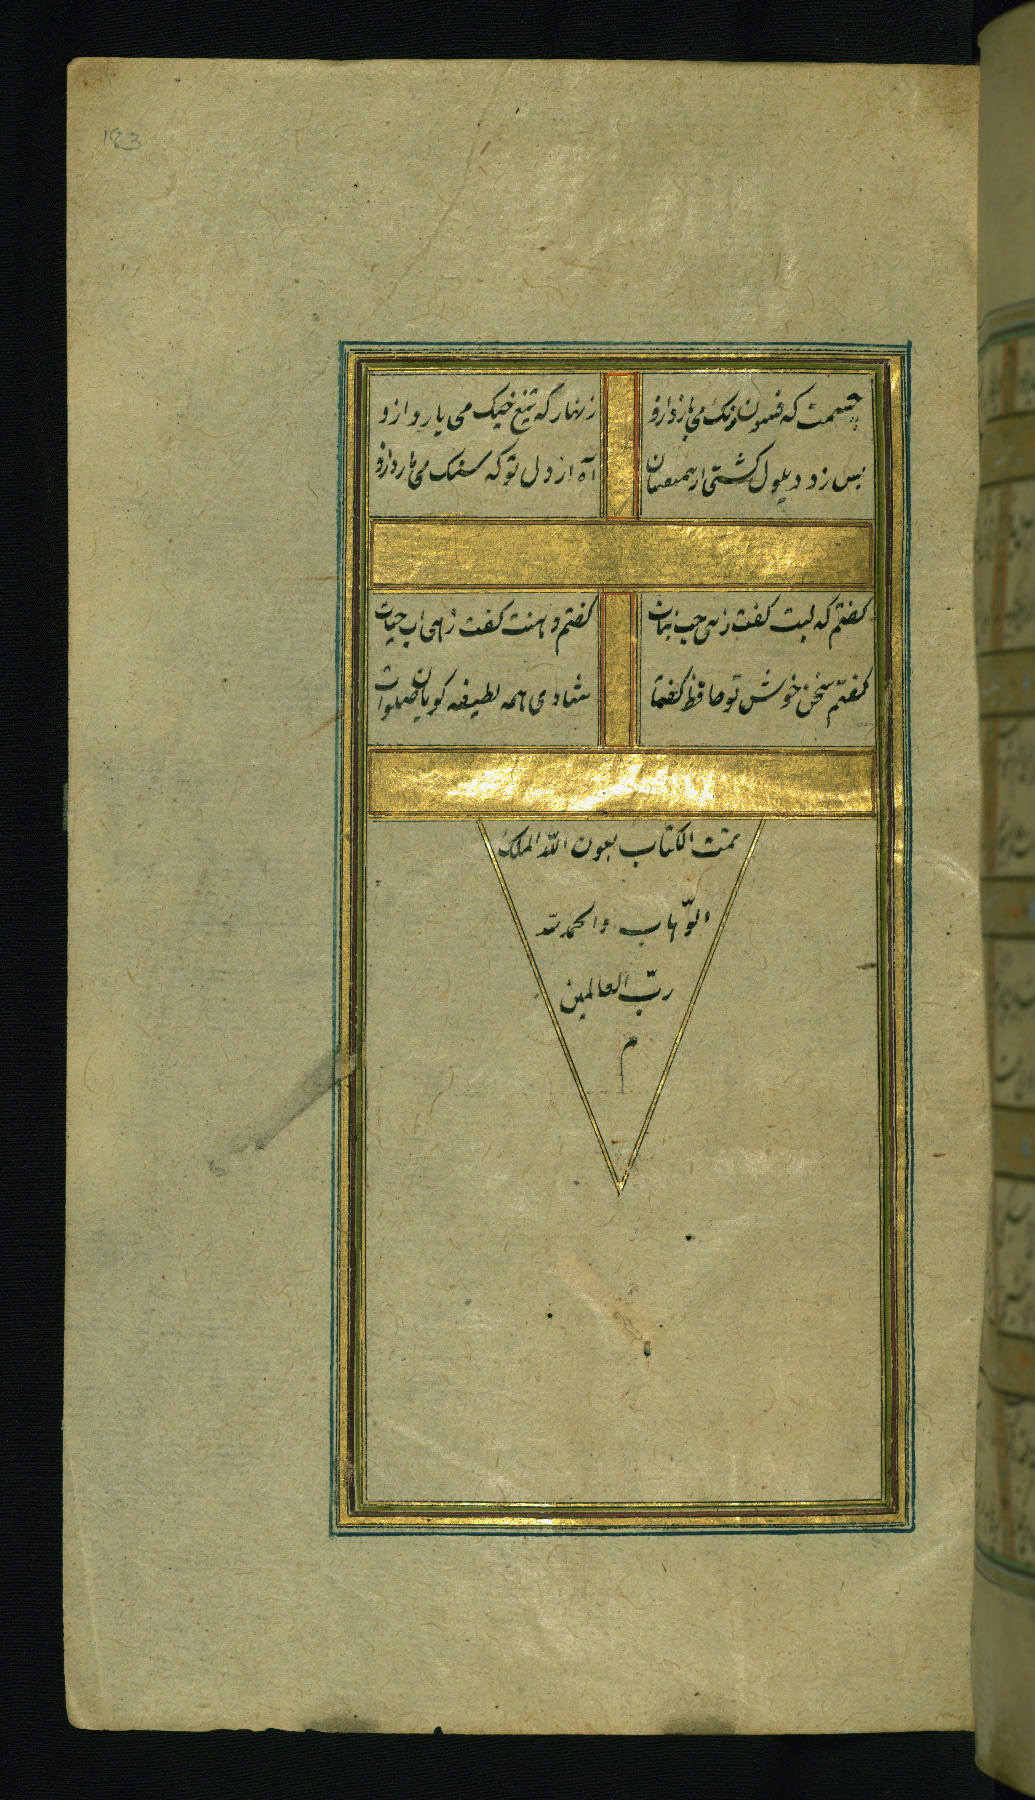 183
چشمت که فسون ورنک می بارد ازو
زنهار که تیغ جنک می بارد ازو
بس زود ملول کشتی از همنفسان
آه از دل تو که سنک می بارد ازو
کفتم که لبت کفت زهی حب نبات
کفتم دهنت کفت زهی اب حیات
کفتم سخن خوش تو حافظ کفتا
شادی همه لطیفه کویان صلوات
تمت الکتاب بعون الله الملک
الوّهاب والحمد لله
ربّ العالمین
م